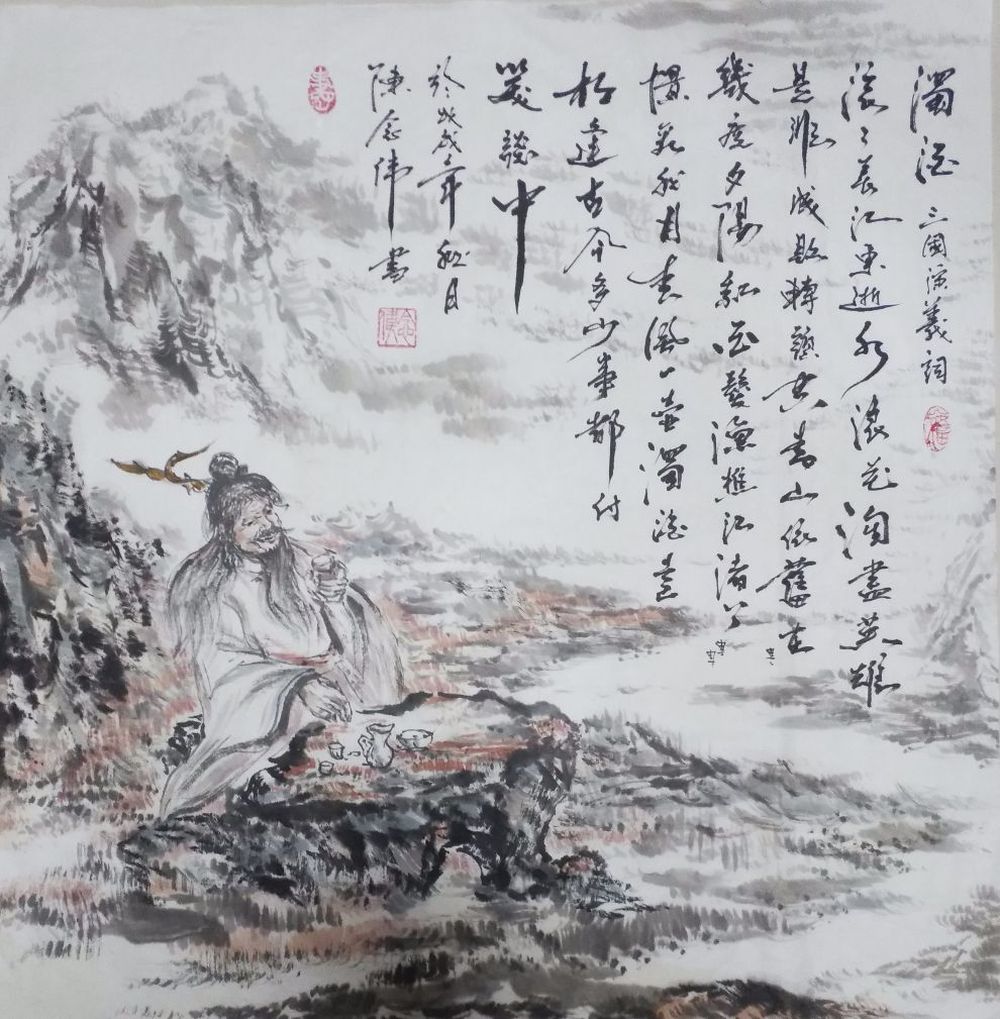 濁酒 三國演義詞
滾〻長江東逝水浪花淘盡英雄
是非成敗轉頭空青山依舊在
幾度夕陽紅白髮漁樵江渚上
慣看秋月春風一壺濁酒喜
相逢古今多少事都付
笑談中
於戊戌年秋月
陳念伟書